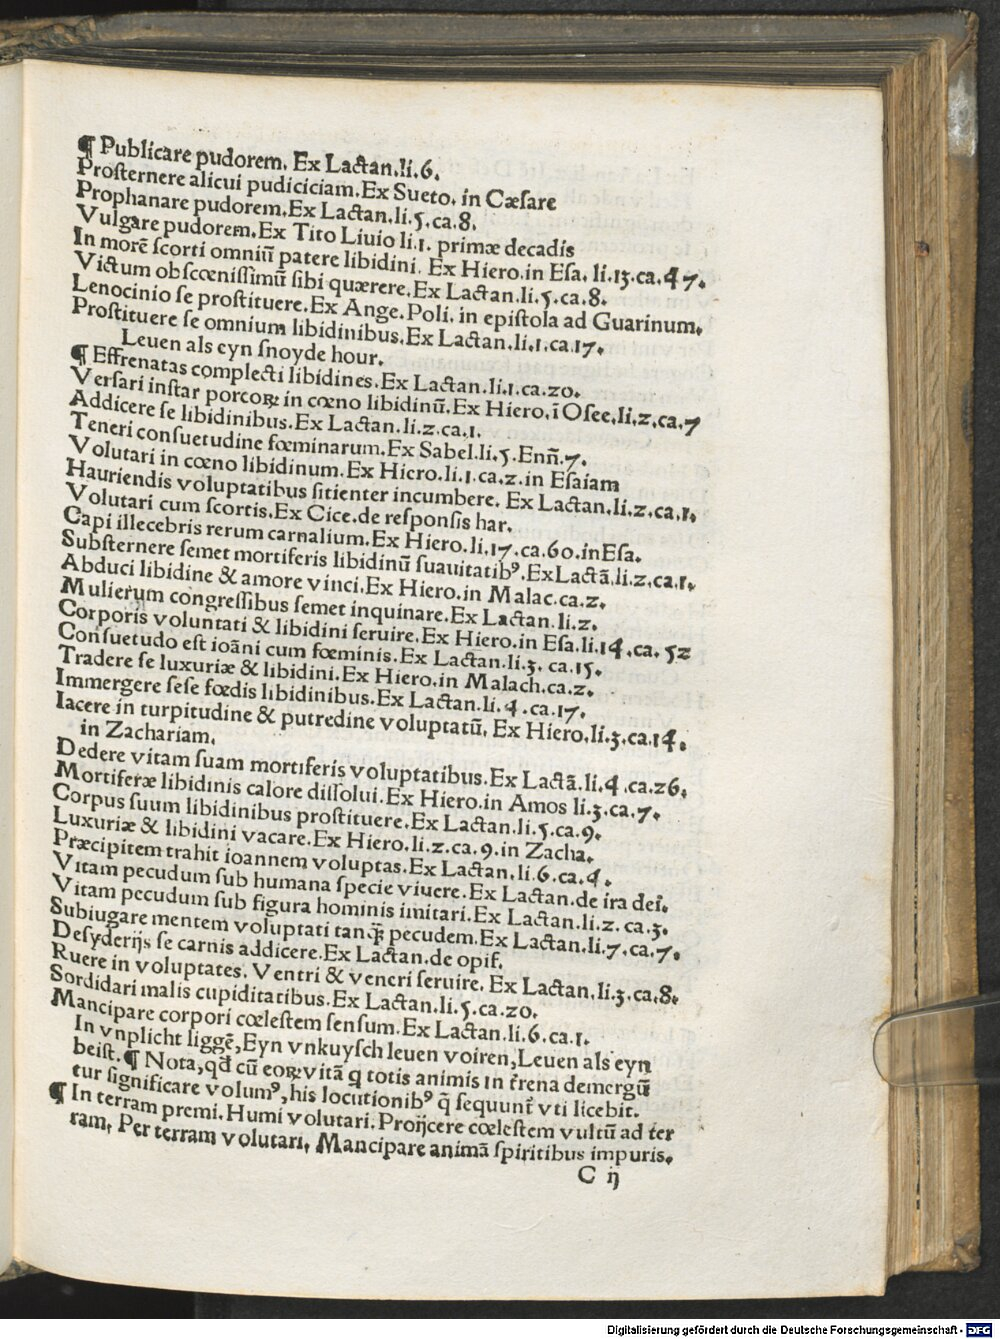 ¶ Publicare pudorem. Ex Lactan.li.6.
Prosternere alicui pudiciciam.Ex Sueto. in Cæsare
Prophanare pudorem.Ex Lactan.li.5.ca.8.
Vulgare pudorem.Ex Tito Liuio li.1. primæ decadis
In morē scorti omniū patere libidini. Ex Hiero.in Esa. li.13.ca.47.
Victum obscœnissimū sibi quærere.Ex Lactan.li.5.ca.8.
Lenocinio se prostituere.Ex Ange.Poli. in epistola ad Guarinum.
Prostituere se omnium libidinibus.Ex Lactan.li.1.ca.17.
Leuen als eyn snoyde hour.
¶ Effrenatas complecti libidines.Ex Lactan.li.1.ca.20.
Versari instar porcoꝝ in cœno libidinū.Ex Hiero.ī Osee.li.2.ca.7
Addicere se libidinibus.Ex Lactan.li.2.ca.1.
Teneri consuetudine fœminarum.Ex Sabel.li.5.Enn̄.7.
Volutari in cœno libidinum.Ex Hiero.li.1.ca.2.in Esaiam
Hauriendis voluptatibus sitienter incumbere. Ex Lactan.li.2.ca.1.
Volutari cum scortis.Ex Cice.de responsis har.
Capi illecebris rerum carnalium.Ex Hiero.li.17.ca.60.inEsa.
Substernere semet mortiferis libidinū suauitatibꝰ.ExLactā.li.2.ca.1.
Abduci libidine & amore vinci.Ex Hiero.in Malac.ca.2.
Mulierum congressibus semet inquinare.Ex Lactan.li.2.
Corporis voluntati & libidini seruire.Ex Hiero.in Esa.li.14.ca.52
Consuetudo est ioāni cum fœminis.Ex Lactan.li.3. ca.15.
Tradere se luxuriæ & libidini.Ex Hiero.in Malach.ca.2.
Immergere sese fœdis libidinibus.Ex Lactan.li.4.ca.17.
Iacere in turpitudine & putredine voluptatū. Ex Hiero.li.3.ca.14.
in Zachariam.
Dedere vitam suam mortiferis voluptatibus.Ex Lactā.li.4.ca.26.
Mortiferæ libidinis calore dissolui.Ex Hiero.in Amos li.3.ca.7.
Corpus suum libidinibus prostituere.Ex Lactan.li.5.ca.9.
Luxuriæ & libidini vacare.Ex Hiero.li.2.ca.9.in Zacha.
Præcipitem trahit ioannem voluptas.Ex Lactan.li.6.ca.4.
Vitam pecudum sub humana specie viuere.Ex Lactan.de ira dei.
Vitam pecudum sub figura hominis imitari.Ex Lactan.li.2. ca.3.
Subiugare mentem voluptati tanꝙ̄ pecudem.Ex Lactan.li.7.ca.7.
Desyderijs se carnis addicere.Ex Lactan.de opif.
Ruere in voluptates. Ventri & veneri seruire. Ex Lactan.li.3.ca.8.
Sordidari malis cupiditatibus.Ex Lactan.li.5.ca.20.
Mancipare corpori cœlestem sensum.Ex Lactan.li.6.ca.1.
In vnplicht liggē,Eyn vnkuysch leuen voiren,Leuen als eyn
beist.¶ Nota,qd̄ cū eoꝝ vitā q totis animis in tr̄rena demergū
tur significare volumꝰ,his locutionibꝰ q̄ sequunt̄ vti licebit.
¶ In terram premi.Humi volutari.Proijcere cœlestem vultū ad ter
ram. Per terram volutari. Mancipare animā spiritibus impuris.
C ij
Digitalisierung gefördert durch die Deutsche Forschungsgemeinschaft - DFG